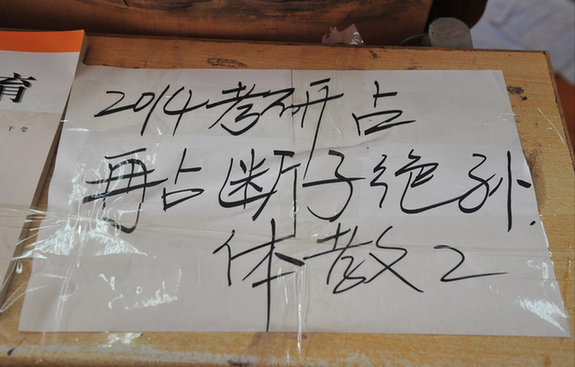 育
2014考研占
再占断子绝孙.
体教2